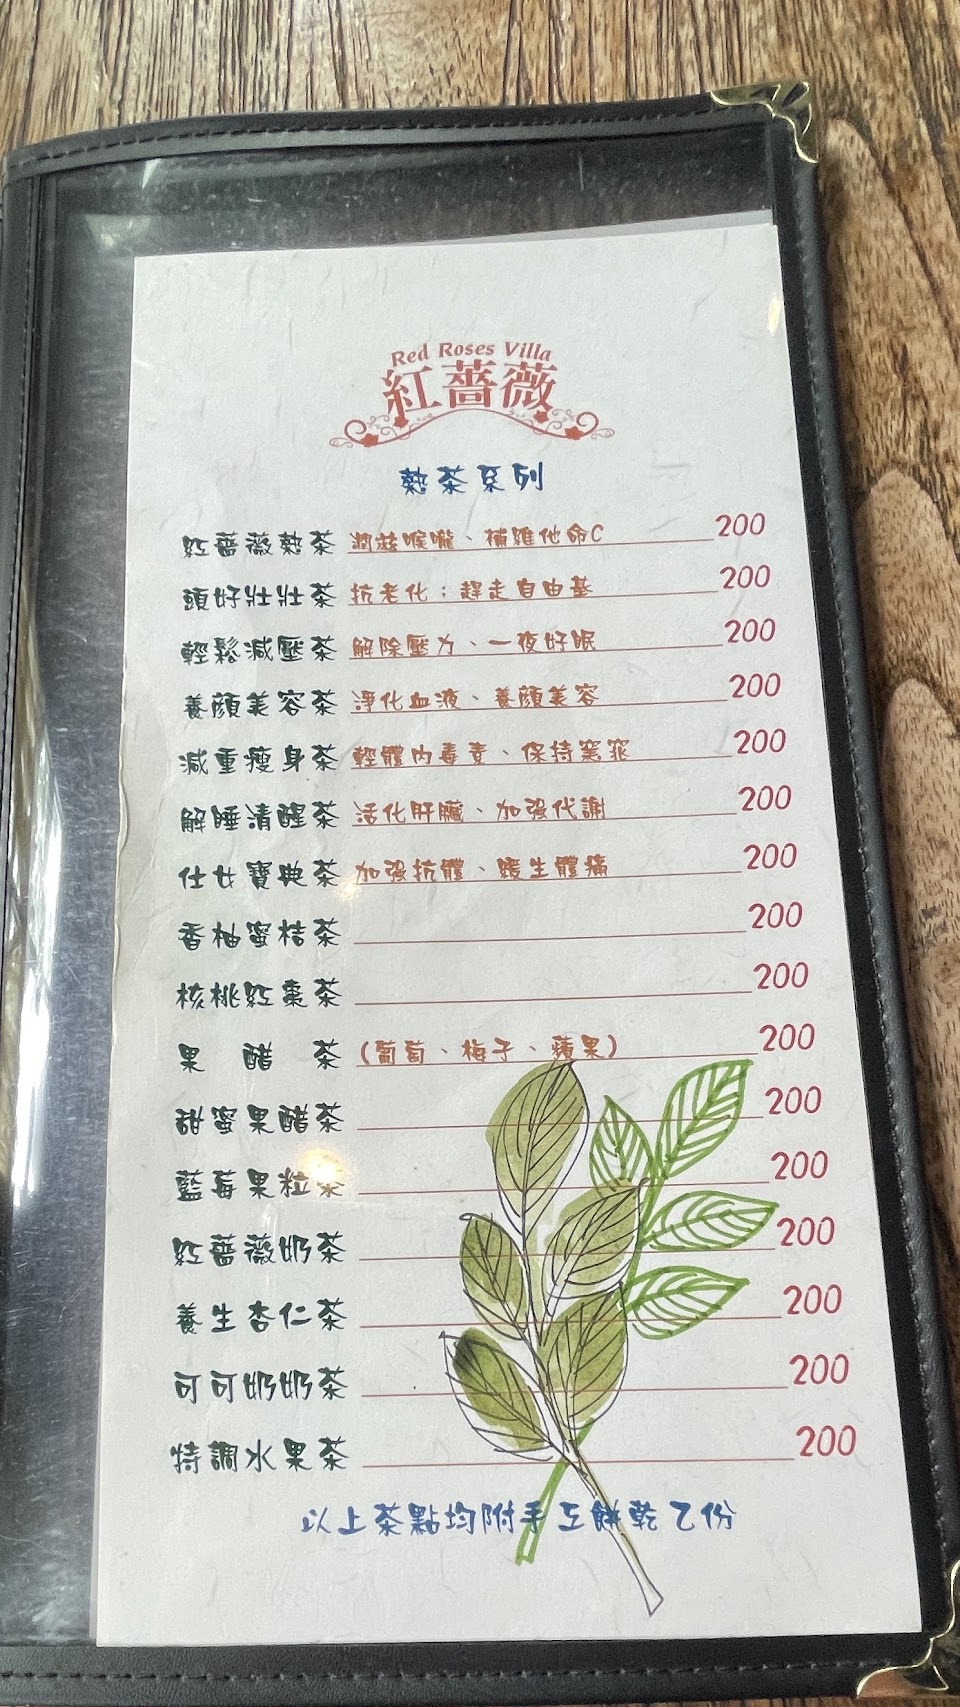 Red Roses Villa
紅薔薇
熱茶系列
紅薔薇熱茶 潤滋喉嚨、補維他命C 200
頭好壯壯茶 抗老化；趕走自由基 200
輕鬆減壓茶 解除壓力、一夜好眠 200
養顏美容茶 淨化血液、養顏美容 200
減重瘦身茶 輕體內毒素、保持窈窕 200
解睡清醒茶 活化肝臟、加强代謝 200
仕女寶典茶 加强抗體、緩生體痛 200
香柚蜜桔茶 200
核桃紅棗茶 200
果醋茶 (葡萄、梅子、蘋果) 200
甜蜜果醋茶 200
藍莓果粒茶 200
紅薔薇奶茶 200
養生杏仁茶 200
可可奶奶茶 200
特調水果茶 200
以上茶點均附手工餅乾乙份